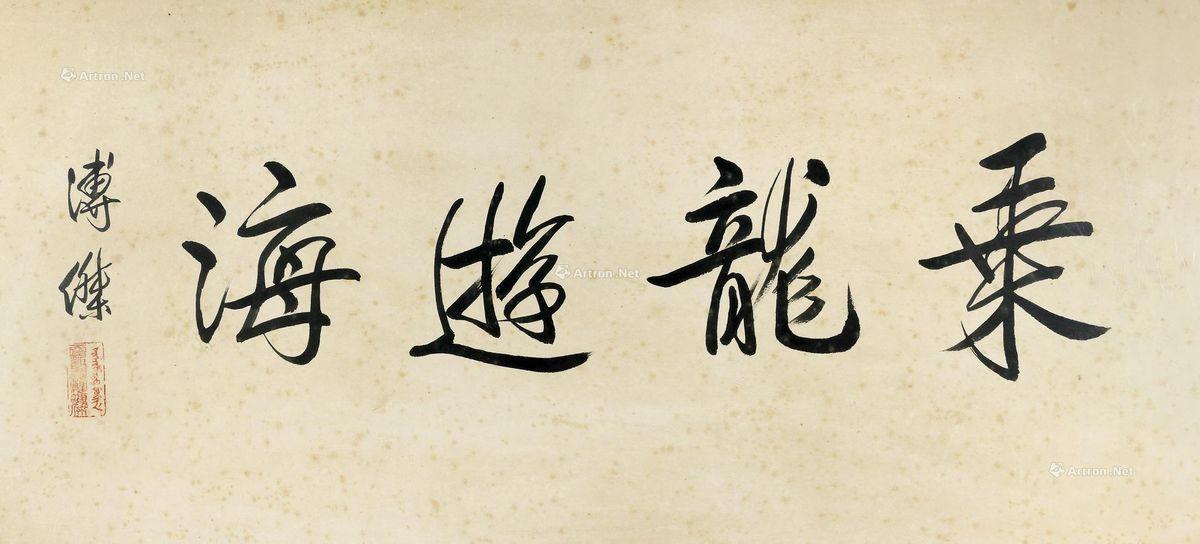 乗龍遊海
溥傑
Artron.Net
Artron.Net
Artron.Net